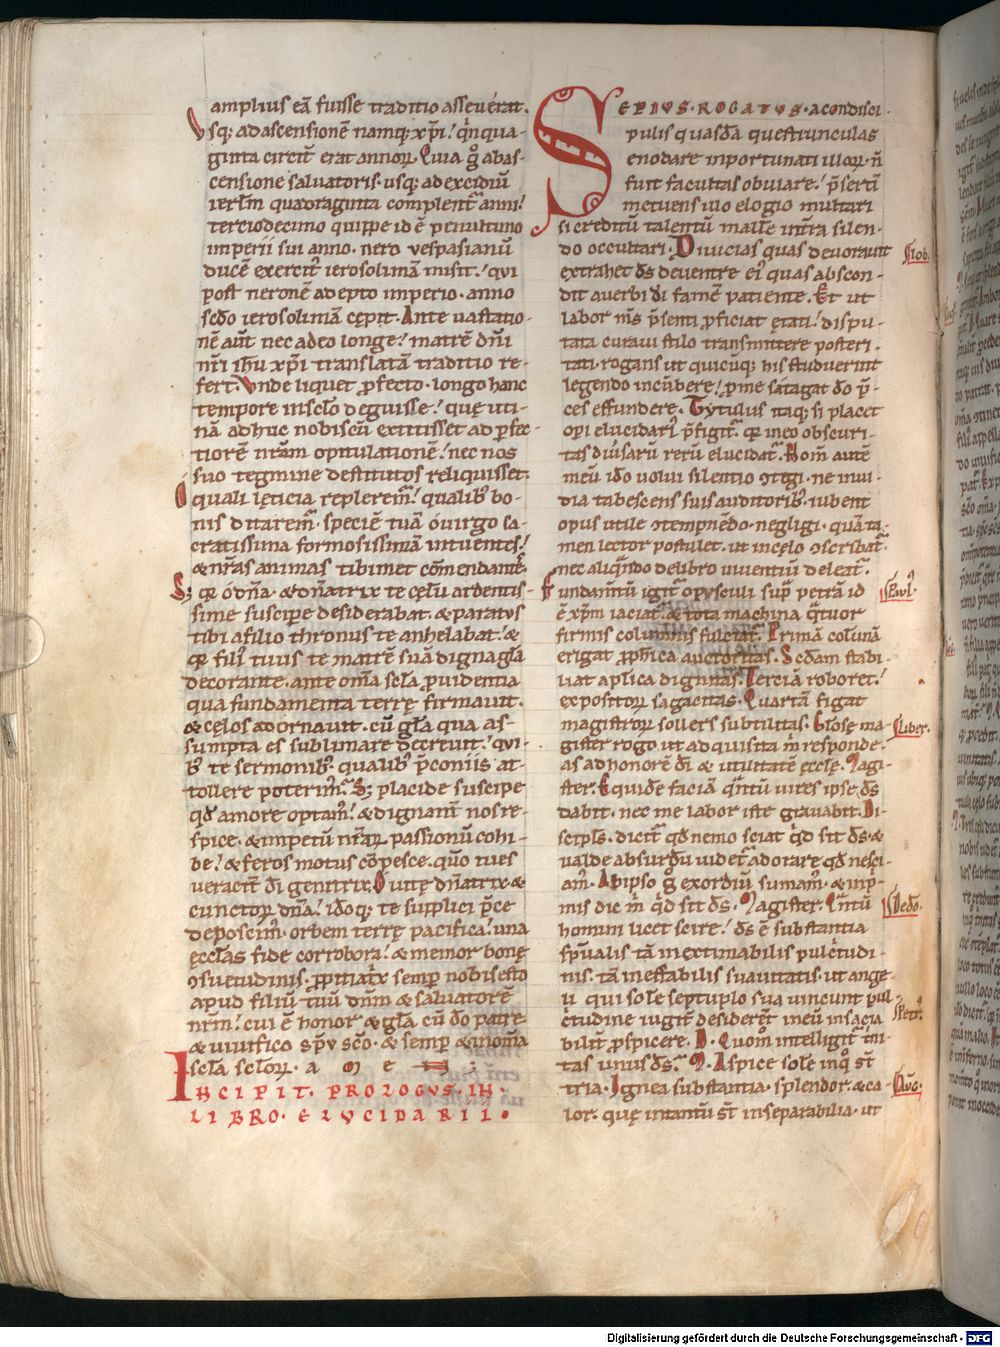 amplius eā fuisse traditio asseverat.
Vsq; ad ascensionē namq; xp̄i! q̄nqua-
ginta circit̄ erat annoꝝ. Quia g̊ ab as-
censione salvatoris. usq; ad excidiū
ierl̄m quadraginta complent̄ anni!
terciodecimo quippe id ē penultimo
imperii sui anno. nero vespasianū
ducē exercit᷒ ierosolimā misit.! qui
post neronē adepto imperio. anno
scd̄o ierosolimā cępit. Ante vastatio-
nē aut̄ nec adeo longe! matrē dn̄i
nr̄i ihu xp̄i translatā traditio re-
fert. Vnde liquet ꝓfecto. longo hanc
tempore in scl̄o deguisse! quę uti-
nā adhuc nobiscū extitisset ad ꝑfec-
tiorē nr̄am opitulationē! nec nos
suo tegmine destitutos reliquisset.
O quali lęticia repleremur! qualib᷒ bo-
nis ditarem̄. speciē tuā o uirgo sa-
cratissima formosissimā intuentes!
& nr̄as animas tibimet cōmendantes.
S; qr̄ o dn̄a. & dn̄atrix te cęlū ardentis-
sime suscipe desiderabat. & paratus
tibi a filio thronus te anhelabat. &
qr̄ fili᷒ tuus te matrē suā digna gl̄a
decorante. ante om̄a scl̄a ꝓuidentia
qua fundamenta terrę firmauit.
& cęlos adornauit. cū gl̄a qua as-
sumpta es sublimare decreuit! qui-
b᷒ te sermonib᷒. qualib᷒ p̄coniis at-
tollere poterim᷒. S; placide suscipe
qd̄ amore optam᷒! & dignant̄ nos re-
spice. & impetū nr̄aꝝ passionū cohi-
be! & feros motus cōpesce. quō tu es
veracit̄ dī genitrix. O uitę dn̄atrix &
cunctoꝝ dn̄a! idoq; te supplici p̄ce
deposcim᷒. orbem terrę pacifica! una
ęccl̄as fide corrobora! & memor bonę
ꝯsuetudinis. ꝓpitiatrix semꝑ nobis esto
apud filiū tuū dn̄m & saluatorē
nr̄m! cui ē honor & gl̄a cū dō patre
& uiuifico sp̄u sc̄o. & semꝑ & in om̄a
scl̄a scl̄oꝝ. a m e n
INCIPIT. PROLOGVS. IN.
LIBRO. ELVCIDARII.
SEPIVS. ROGATVS. a condisci-
pulis quasdā questiunculas
enodare inportunati illoꝝ. n̄
fuit facultas obuiare! p̄serti
metuens illo elogio multari
si creditū talentū mallē in t̄ra silen-
do occultari. Diuicias quas deuorauit
extrahet ds̄ de uentre ei᷒ quas abscon-
dit a uerbi dī famē patiente. Et ut
labor m̄s p̄senti ꝓficiat ętati! dispu-
tata curaui stilo transmittere posteri-
tati. rogans ut quicūq; his studuerint
legendo incūbere! ꝓ me satagat dō p̄-
ces effundere. Tytulus itaq; si placet
opi elucidari᷒ p̄figit̄. qr̄ in eo obscuri-
tas diūsarū rerū elucidat̄. Nom̄ autē
meū idō uolui silentio ꝯtegi. ne inui-
dia tabescens suis auditorib᷒ iubent
opus utile ꝯtempnēdo. negligi. quā ta-
men lector postulet. ut in cęlo ꝯscribat̄.
nec aliqn̄do de libro uiuentiū deleat̄.
Fundam̄tū igit̄ opusculi sup̄ petrā id
ē xp̄m iaciat̄. & tota machina q̄tuor
firmis columnis fulciat̄. Primā colūnā
erigat ꝓph̄ica auctoritas. Scd̄am stabi-
liat apl̄ica dignitas. Terciā roboret!
expositoꝝ sagacitas. Quartā figat
magistroꝝ sollers subtilitas. Glorię ma-
gister rogo ut ad quisita m̄ responde-
as ad honorē dī & utilitatē ęcclę. Magi-
ster. Equidē faciā q̄ntū uires ipse ds̄
dabit. nec me labor iste grauabit. Di-
scipls. dicit̄ qd̄ nemo sciat q̄d sit ds̄. &
ualde absurdū uidet̄ adorare qd̄ nesci-
am᷒. Ab ipso g̊ exordiū sumam᷒. & inp̄-
mis dic m̄ q̄d sit ds̄. Magister. Q̄ntū
homini licet scire! ds̄ ē substantia
sp̄ualis tā inextimabilis pulc̄tudi-
nis. tā ineffabilis suauitatis. ut ange-
li qui solē septuplo sua uincunt pul-
c̄tudine iugit̄ desiderēt in eū insacia-
bilit̄ ꝓspicere. D. Quom̊ intelligit̄ t̄ni-
tas unus ds̄. M. Aspice solē in q̊ st̄
tria. Ignea substantia. splendor. & ca-
lor. quę intantū st̄ inseparabilia. ut
Iob.
Paul᷒.
Liber.
Dedo.
Petr᷒.
Aug᷒.
Digitalisierung gefördert durch die Deutsche Forschungsgemeinschaft - DFG